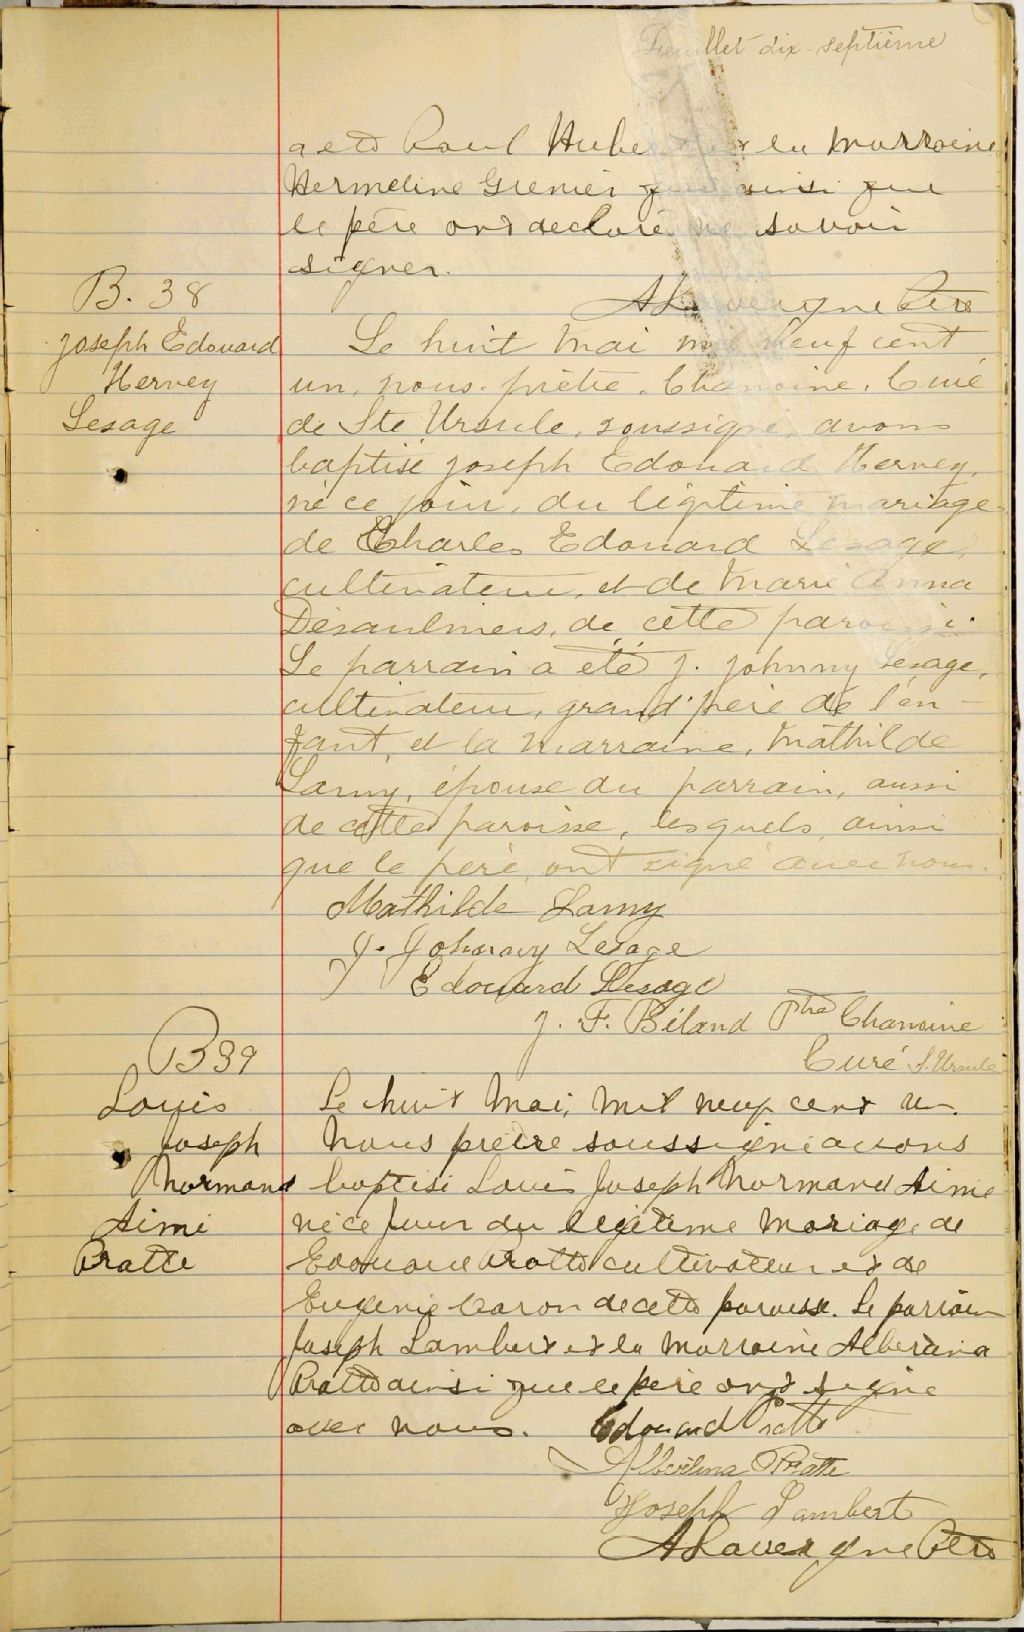 Feuillet dix-septième
a été Raoul Hube et la Marraine
Hermeline Grenier qui ainsi que
le père ont declaré ne savoir
signer.
A Lavergne Ptre
B. 38
Joseph Edouard
Hervey
Lesage
Le huit Mai mil neuf cent
un, nous. prêtre. Chanoine. Curé
de Ste Ursule, soussigné, avons
baptisé Joseph Edouard Hervey,
né ce jour, du légitime mariage
de Charles Edouard Lesage,
cultivateur, et de Marie Anna
Désaulniers, de cette paroisse.
Le parrain a été J. Johnny Lesage,
cultivateur, grand'père de l'en-
fant, et la marraine, Mathilde
Lamy, épouse du parrain, aussi
de cette paroisse, lesquels, ainsi
que le père, ont signé avec nous.
Mathilde Lamy
J. Johnny Lesage
Edouard Lesage
J. F. Béland Ptre Chanoine
Curé S. Ursule
B 39
Louis
Joseph
Normand
Aimé
Pratte
Le huit Mai, Mil neuf cent un.
Nous prêtre soussigné avons
baptisé Louis Joseph Normand Aimé
né ce jour du légitime Mariage de
Edouard Pratte cultivateur et de
Eugenie Caron de cette paroisse. Le parrain
Joseph Lambert et la Marraine Albertina
Pratte ainsi que le père ont signé
avec nous. Edouard Pratte
Albertina Pratte
Joseph Lambert
A Lavergne Ptre